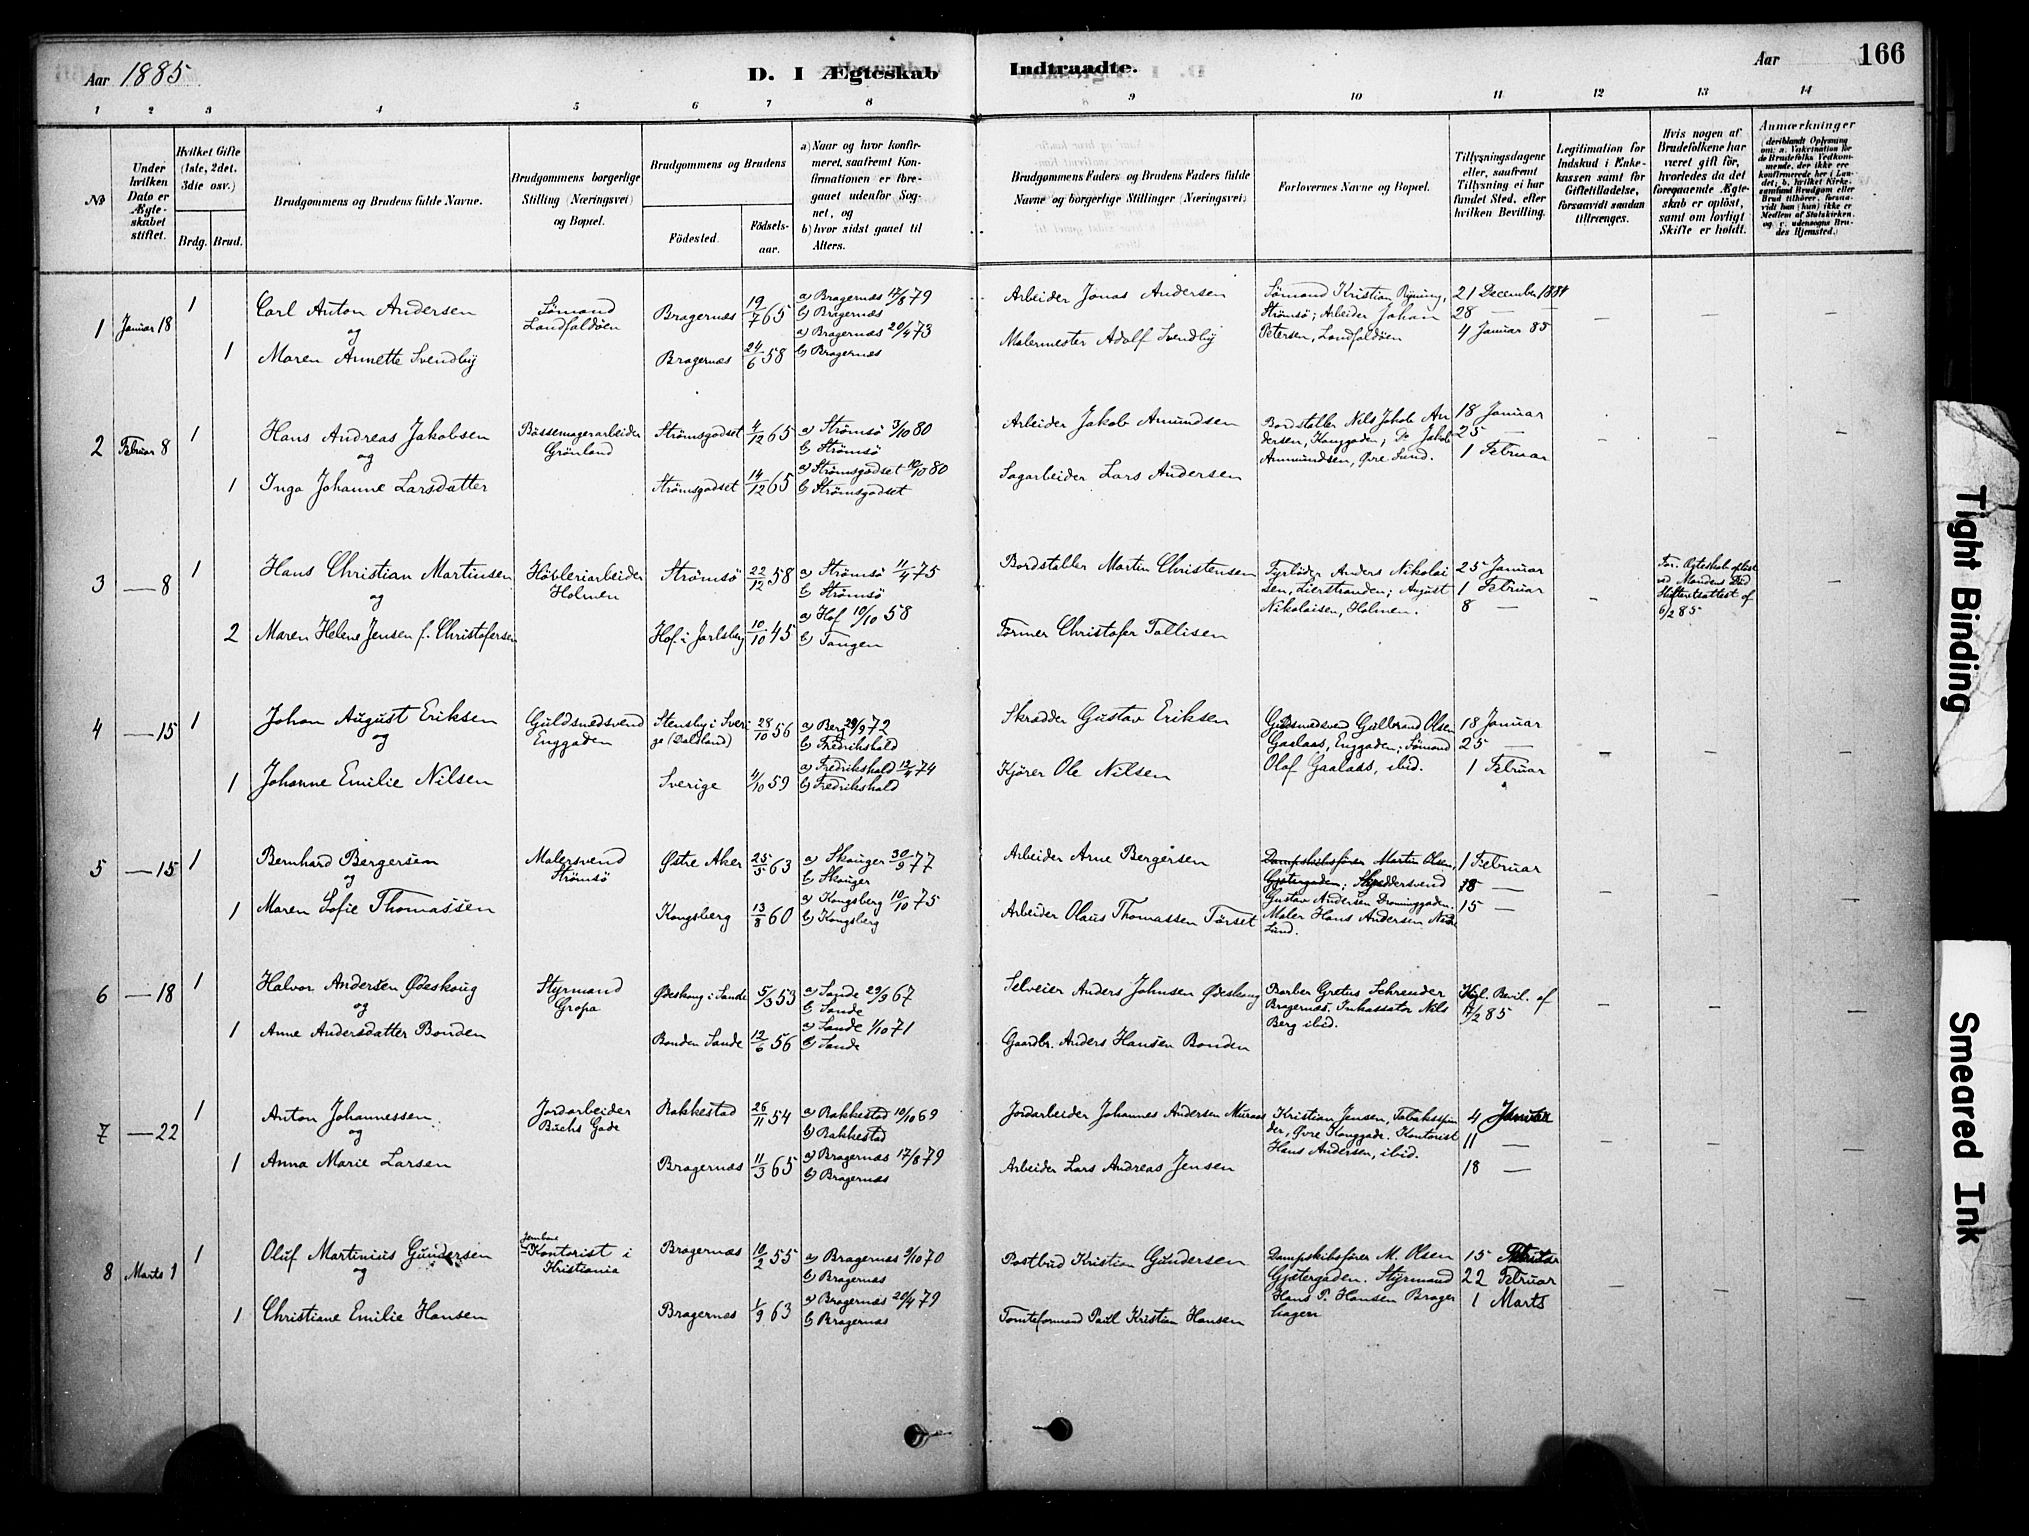 Aar 1885
D. I Ægteskab Indtraadte.
Aar
166
1 2 3 4 5 6 7 8 8 9 10 11 12 13 14
No
Under hvilken Dato er Ægteskabet stiftet.
Hvilket Gifte (1ste, 2det, 3die osv.)
Brdg. Brud.
Brudgommens og Brudens fulde Navne.
Brudgommens borgerlige Stilling (Næringsvei) og Bopæl.
Brudgommens og Brudens
Födested.
Födselsaar.
a) Naar og hvor konfirmeret, saafremt Konfirmationen er foregaaet udenfor Sognet, og
b) hvor sidst gaaet til Alters.
Brudgommens Faders og Brudens Faders fulde Navne og borgerlige Stillinger (Næringsvei)
Forlovernes Navne og Bopæl.
Tillysningsdagene eller, saafremt Tillysning ei har fundet Sted, efter hvilken Bevilling.
Legitimation for Indskud i Enkekassen samt for Giftetilladelse, forsaavidt saadan tiltrænges.
Hvis nogen af Brudefolkene har været gift før, hvorledes da det foregaaende Ægteskab er oplöst, samt om lovligt Skifte er holdt.
Anmærkninger
1 Januar 18
1 Carl Anton Andersen
og
1 Maren Annette Svendby
Sømand
Landfaldöen
Bragernæs 19/7 65
Bragernæs 24/6 58
a) Bragernæs 17/8 79
b) Bragernæs
a) Bragernæs 20/4 73
b) Bragernæs
Arbeider Jonas Andersen
Malermester Adolf Svendby
Sømand Kristian Ryning,
Strömsö; Arbeider Johan
Petersen, Landfaldöen
21 December 1884
28 —
4 Januar 85
2 Februar 8
1 Hans Andreas Jakobsen
og
1 Inga Johanne Larsdatter
Bössemagerarbeider
Grönland
Strömsgodset 4/12 65
Strömsgodset 14/12 65
a) Strömsö 3/10 80
b) Strömsö
a) Strömsgodset 10/10 80
b) Strömsgodset
Arbeider Jakob Amundsen
Sagarbeider Lars Andersen
Bordstabler Nils Jakob An
dersen, Konggaden; Do Jakob
Ammundsen, Øvre Sund.
18 Januar
25 —
1 Februar
3 — 8
1 Hans Christian Martinsen
og
2 Maren Helene Jensen f. Christofersen
Høvleriarbeider
Holmen
Strömsö 22/12 58
Hof i Jarlsberg 10/10 45
a) Strömsö 11/4 75
b) Strömsö
a) Hof 10/10 58
b) Tangen
Bordstabler Martin Christensen
Former Christofer Tollisen
Fyrböder Anders Nikolai
sen, Lierstranden; August
Nikolaisen, Holmen.
25 Januar
1 Februar
8 —
For. Ægteskab oplöst
ved Mandens Död
Skifteretsattest af
6/2 85
4 — 15
1 Johan August Eriksen
og
1 Johanne Emilie Nilsen
Guldsmedsvend
Enggaden
Stensby i Sveri
ge (Dalsland) 28/10 56
Sverige 4/10 59
a) Berg 29/9 72
b) Fredrikshald
a) Fredrikshald 12/4 74
b) Fredrikshald
Skrædder Gustav Eriksen
Kjörer Ole Nilsen
Guldsmedsvend Gulbrand Olsen
Gaalaas, Enggaden; Sömand
Olaf Gaalaas, ibid.
18 Januar
25 —
1 Februar
5 — 15
1 Bernhard Bergersen
og
1 Maren Sofie Thomassen
Malersvend
Strömsö
Østre Aker 25/5 63
Kongsberg 13/8 60
a) Skouger 30/9 77
b) Skouger
a) Kongsberg 10/10 75
b) Kongsberg
Arbeider Arne Bergersen
Arbeider Olaus Thomassen Törset
Dampskibsfører Martin Olsen,
Gjetergaden; Skræddersvend
Gustav Andersen Dronninggaden.
Maler Hans Andersen Nedre
Sund.
1 Februar
8 —
15 —
6 — 18
1 Halvor Andersen Ødeskoug
og
1 Anne Andersdatter Bonden
Styrmand
Gropa
Ødeskoug i Sande 5/3 53
Bonden Sande 12/6 56
a) Sande 29/9 67
b) Sande
a) Sande 1/10 71
b) Sande
Selveier Anders Johnsen Ødeskoug
Gaardbr. Anders Hansen Bonden
Barber Gretus Schrøuder
Bragernæs. Inkassator Nils
Berg ibid.
Kgl. Bevil. af
17/2 85
7 — 22
1 Anton Johannessen
og
1 Anna Marie Larsen
Jordarbeider
Buchs Gade
Rakkestad 26/11 54
Bragernæs 11/3 65
a) Rakkestad 10/10 69
b) Rakkestad
a) Bragernæs 17/8 79
b) Bragernæs
Jordarbeider Johannes Andersen Muraas
Arbeider Lars Andreas Jensen
Kristian Jensen, Tobaksspin
der, Øvre Konggade. Kontorist
Hans Andersen, ibid.
4 Januar
11 —
18 —
8 Marts 1
1 Oluf Martinius Gundersen
og
1 Christiane Emilie Hansen
Jernbane
Kontorist i
Kristiania
Bragernæs 10/2 55
Bragernæs 1/9 63
a) Bragernæs 9/10 70
b) Bragernæs
a) Bragernæs 20/4 79
b) Bragernæs
Postbud Kristian Gundersen
Tomteformand Paul Kristian Hansen
Dampskibsfører M. Olsen
Gjetergaden. Styrmand
Hans P. Hansen Brager
hagen
15 Februar
22 Februar
1 Marts
Tight Binding
Smeared Ink